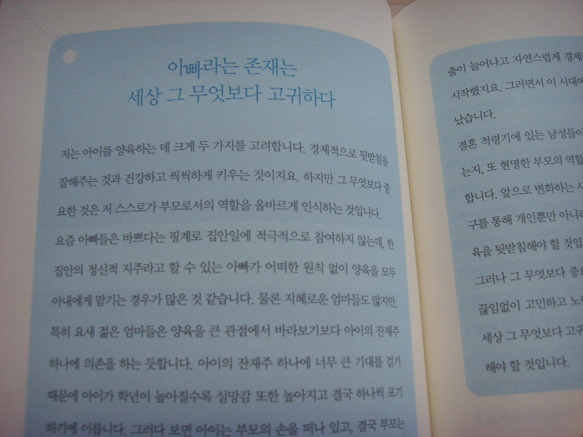 아빠라는 존재는
세상 그 무엇보다 고귀하다
저는 아이를 양육하는 데 크게 두 가지를 고려합니다. 경제적으로 뒷받침을
잘해주는 것과 건강하고 씩씩하게 키우는 것이지요. 하지만 그 무엇보다 중
요한 것은 저 스스로가 부모로서의 역할을 올바르게 인식하는 것입니다.
요즘 아빠들은 바쁘다는 핑계로 집안일에 적극적으로 참여하지 않는데, 한
집안의 정신적 지주라고 할 수 있는 아빠가 어떠한 원칙 없이 양육을 모두
아내에게 맡기는 경우가 많은 것 같습니다. 물론 지혜로운 엄마들도 많지만,
특히 요새 젊은 엄마들은 양육을 큰 관점에서 바라보기보다 아이의 잔재주
하나에 의존을 하는 듯합니다. 아이의 잔재주 하나에 너무 큰 기대를 걸기
때문에 아이가 학년이 높아질수록 실망감 또한 높아지고 결국 하나씩 포기
하기에 이릅니다. 그러다 보면 아이는 부모의 손을 떠나 있고, 결국 부모는
출이 늘어나고 자연스럽게 경제
시작했지요. 그러면서 이 시대에
났습니다.
결혼 적령기에 있는 남성들이
는지, 또 현명한 부모의 역할
합니다. 앞으로 변화하는 사
구를 통해 개인뿐만 아니라
육을 뒷받침해야 할 것입니다.
그러나 그 무엇보다 중요
끊임없이 고민하고 노
세상 그 무엇보다 고귀
해야 할 것입니다.